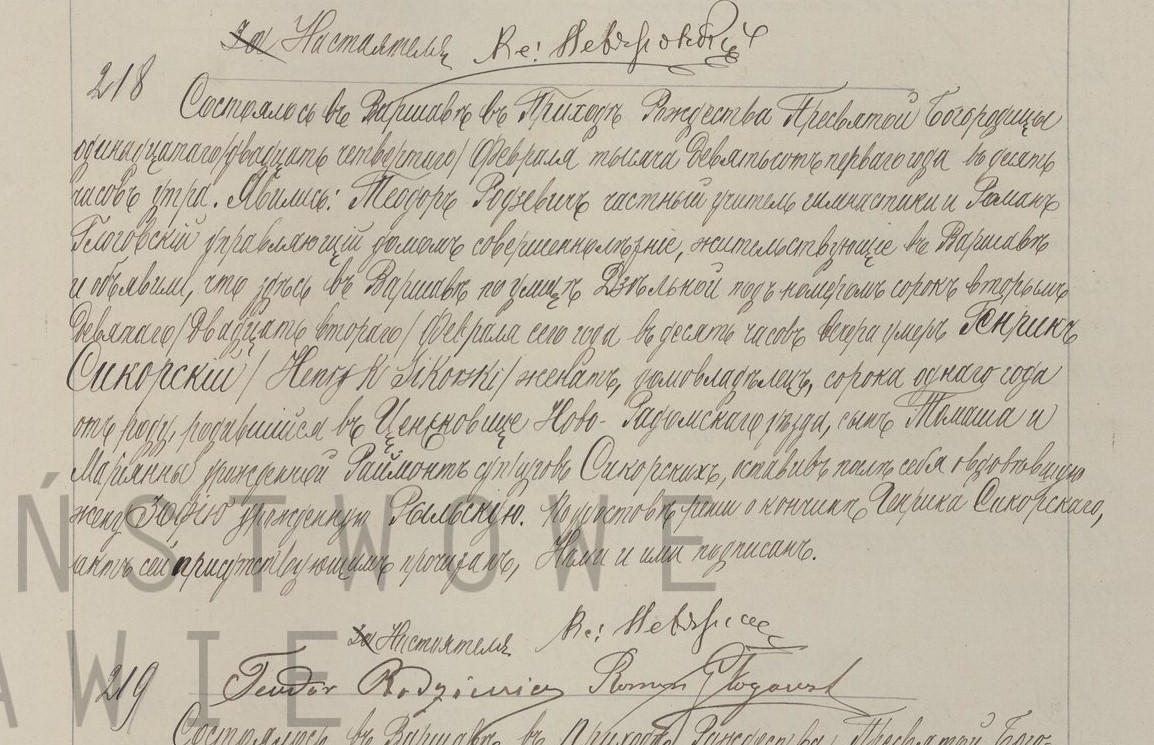 За Настоятеля Кс:
218
Состоялось въ Варшавѣ въ Приходѣ Рождества Пресвятой Богородицы
одинадцатаго/двадцать четвертаго/ Февраля тысяча девятьсотъ перваго года въ десять
часовъ утра. Явились: Теодоръ Родзевичъ частный учитель гимнастики и Романъ
Глоговскій управляющій домомъ совершеннолѣтніе, жительствующіе въ Варшавѣ
и объявили, что здѣсь въ Варшавѣ по улицѣ Дзѣльной подъ номеромъ сорокъ вторымъ
девятаго/двадцать втораго/ Февраля сего года въ десять часовъ вечера умеръ Генрикъ
Сикорскій / Henryk Sikorski / женатъ, домовладѣлецъ, сорока однаго года
отъ роду, родившійся въ Ново-Радомскаго уѣзда, сынъ Томаша и
Маріанны урожденной Раймонтъ супруговъ Сикорскихъ, оставивъ послѣ себя овдовѣвшую
жену Зофію урожденную Рыльскую. По удостовѣреніи о кончинѣ Генрика Сикорскаго,
актъ сей присутствующимъ прочитанъ, Нами и ими подписанъ.
За Настоятеля Кс:
219 Teodor Rodziewicz Roman Głogowski
Состоялось въ Варшавѣ въ Приходѣ Рождества Пресвятой Бого-
ŃSTWOWE
AWIE